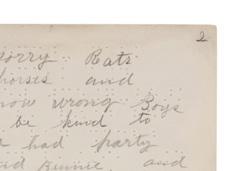 2
sorry Rats
horses and
now wrong Boys
be kind to
had party
and and